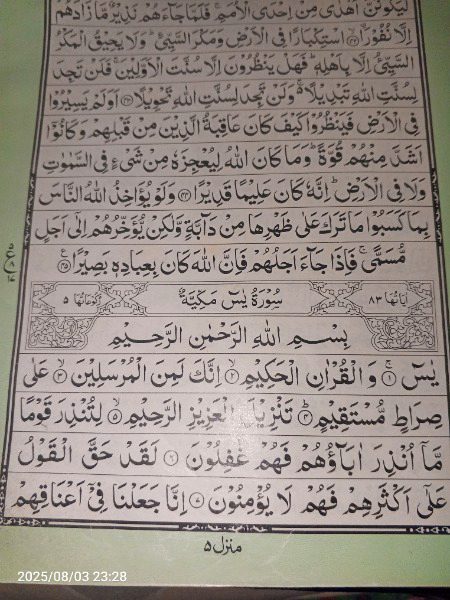 لَيَكُوْنُنَّ اَهْدٰى مِنْ اِحْدَى الْاُمَمِ ۚ فَلَمَّا جَآءَهُمْ نَذِيْرٌ مَّا زَادَهُمْ
اِلَّا نُفُوْرًا ﴿۴۲﴾ اسْتِكْبَارًا فِى الْاَرْضِ وَمَكْرَ السَّيِّئِ ؕ وَلَا يَحِيْقُ الْمَكْرُ
السَّيِّئُ اِلَّا بِاَهْلِهٖ ؕ فَهَلْ يَنْظُرُوْنَ اِلَّا سُنَّتَ الْاَوَّلِيْنَ ۚ فَلَنْ تَجِدَ
لِسُنَّتِ اللّٰهِ تَبْدِيْلًا ۚ وَلَنْ تَجِدَ لِسُنَّتِ اللّٰهِ تَحْوِيْلًا ﴿۴۳﴾ اَوَلَمْ يَسِيْرُوْا
فِى الْاَرْضِ فَيَنْظُرُوْا كَيْفَ كَانَ عَاقِبَةُ الَّذِيْنَ مِنْ قَبْلِهِمْ وَكَانُوْۤا
اَشَدَّ مِنْهُمْ قُوَّةً ؕ وَمَا كَانَ اللّٰهُ لِيُعْجِزَهٗ مِنْ شَىْءٍ فِى السَّمٰوٰتِ
وَلَا فِى الْاَرْضِ ؕ اِنَّهٗ كَانَ عَلِيْمًا قَدِيْرًا ﴿۴۴﴾ وَلَوْ يُؤَاخِذُ اللّٰهُ النَّاسَ
بِمَا كَسَبُوْا مَا تَرَكَ عَلٰى ظَهْرِهَا مِنْ دَآبَّةٍ وَّلٰكِنْ يُّؤَخِّرُهُمْ اِلٰٓى اَجَلٍ
مُّسَمًّى ۚ فَاِذَا جَآءَ اَجَلُهُمْ فَاِنَّ اللّٰهَ كَانَ بِعِبَادِهٖ بَصِيْرًا ﴿۴۵﴾
اٰيَاتُهَا ۸۳ سُوْرَةُ يٰسٓ مَكِّيَّةٌ رُكُوْعَاتُهَا ۵
بِسْمِ اللّٰهِ الرَّحْمٰنِ الرَّحِيْمِ
يٰسٓ ﴿۱﴾ وَالْقُرْاٰنِ الْحَكِيْمِ ﴿۲﴾ اِنَّكَ لَمِنَ الْمُرْسَلِيْنَ ﴿۳﴾ عَلٰى
صِرَاطٍ مُّسْتَقِيْمٍ ﴿۴﴾ تَنْزِيْلَ الْعَزِيْزِ الرَّحِيْمِ ﴿۵﴾ لِتُنْذِرَ قَوْمًا
مَّاۤ اُنْذِرَ اٰبَآؤُهُمْ فَهُمْ غٰفِلُوْنَ ﴿۶﴾ لَقَدْ حَقَّ الْقَوْلُ
عَلٰٓى اَكْثَرِهِمْ فَهُمْ لَا يُؤْمِنُوْنَ ﴿۷﴾ اِنَّا جَعَلْنَا فِىْۤ اَعْنَاقِهِمْ
منزل ۵
2025/08/03 23:28